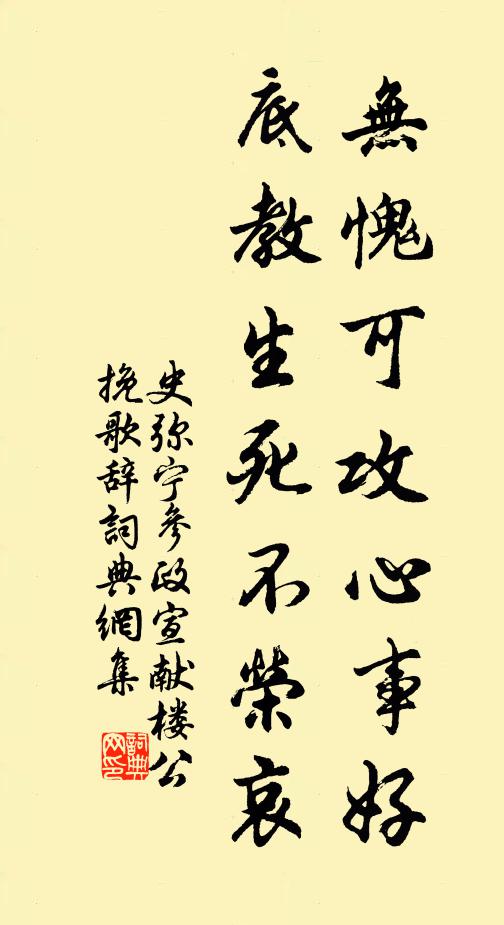 無愧可攻心事好
底教生死不榮哀
史弥宁參政宣献楼公
挽歌辞詞典網集
詞典网印